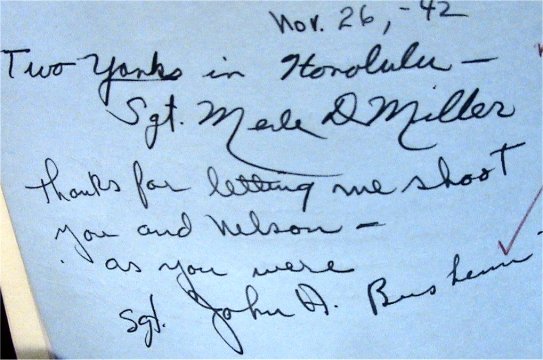 Nov. 26, -42
Two Yanks in Honolulu —
Sgt. Merle D Miller
thanks for letting me shoot
you and Nelson —
as you were
Sgt. John A. Bushemi